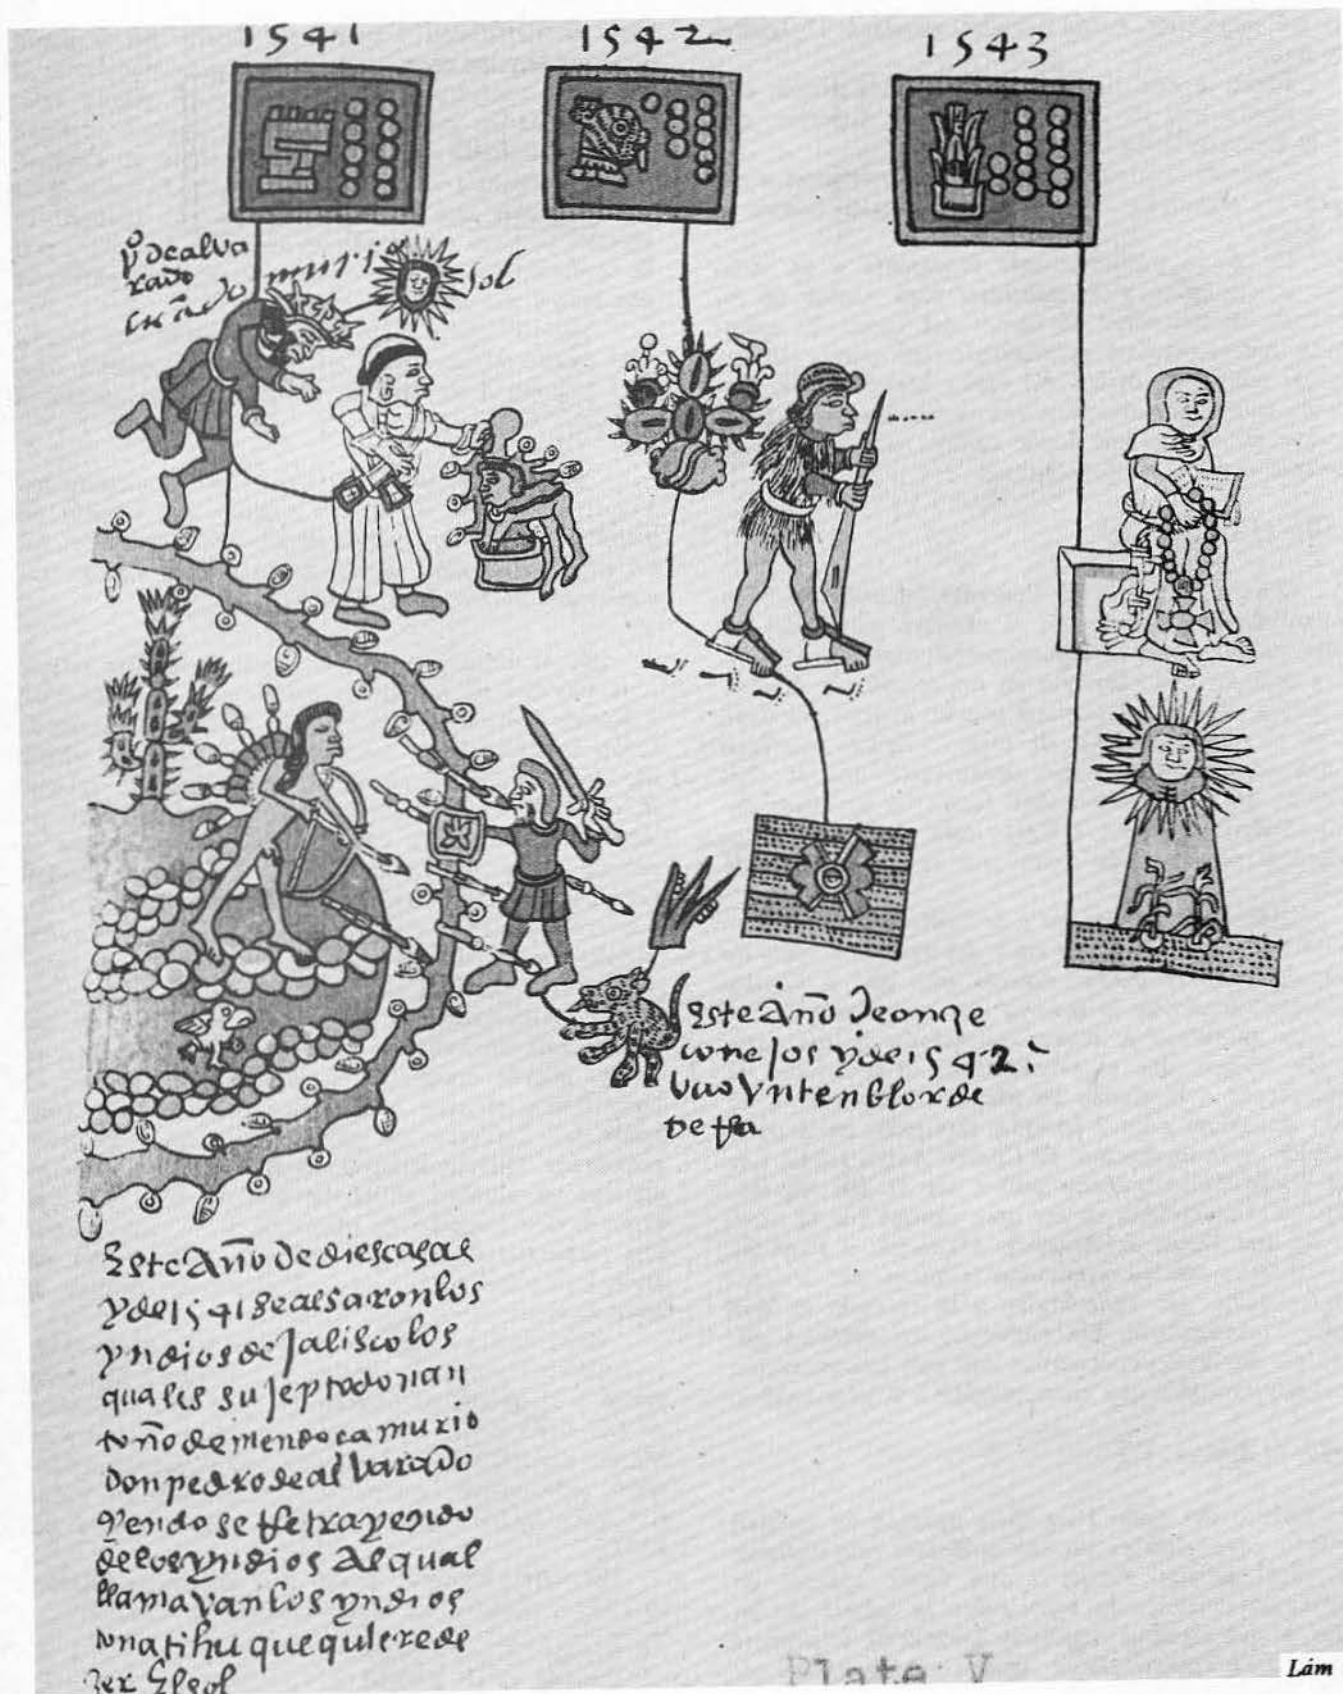 1541
1542
1543
po de alva
rado
sol
Este Año de onze
conejos y de 1542.
vuo un tenblor de
de tra
Este Año de diescasas
y de 1541 se alsaron los
yndios de Jalisco los
quales sujepto don an
toño de mendoca murio
Don pedro de alvarado
yendo se Retrayendo
de los yndios Al qual
llamavan los yndios
tonatihu que quiere de
zer El sol
Plate V
Lám